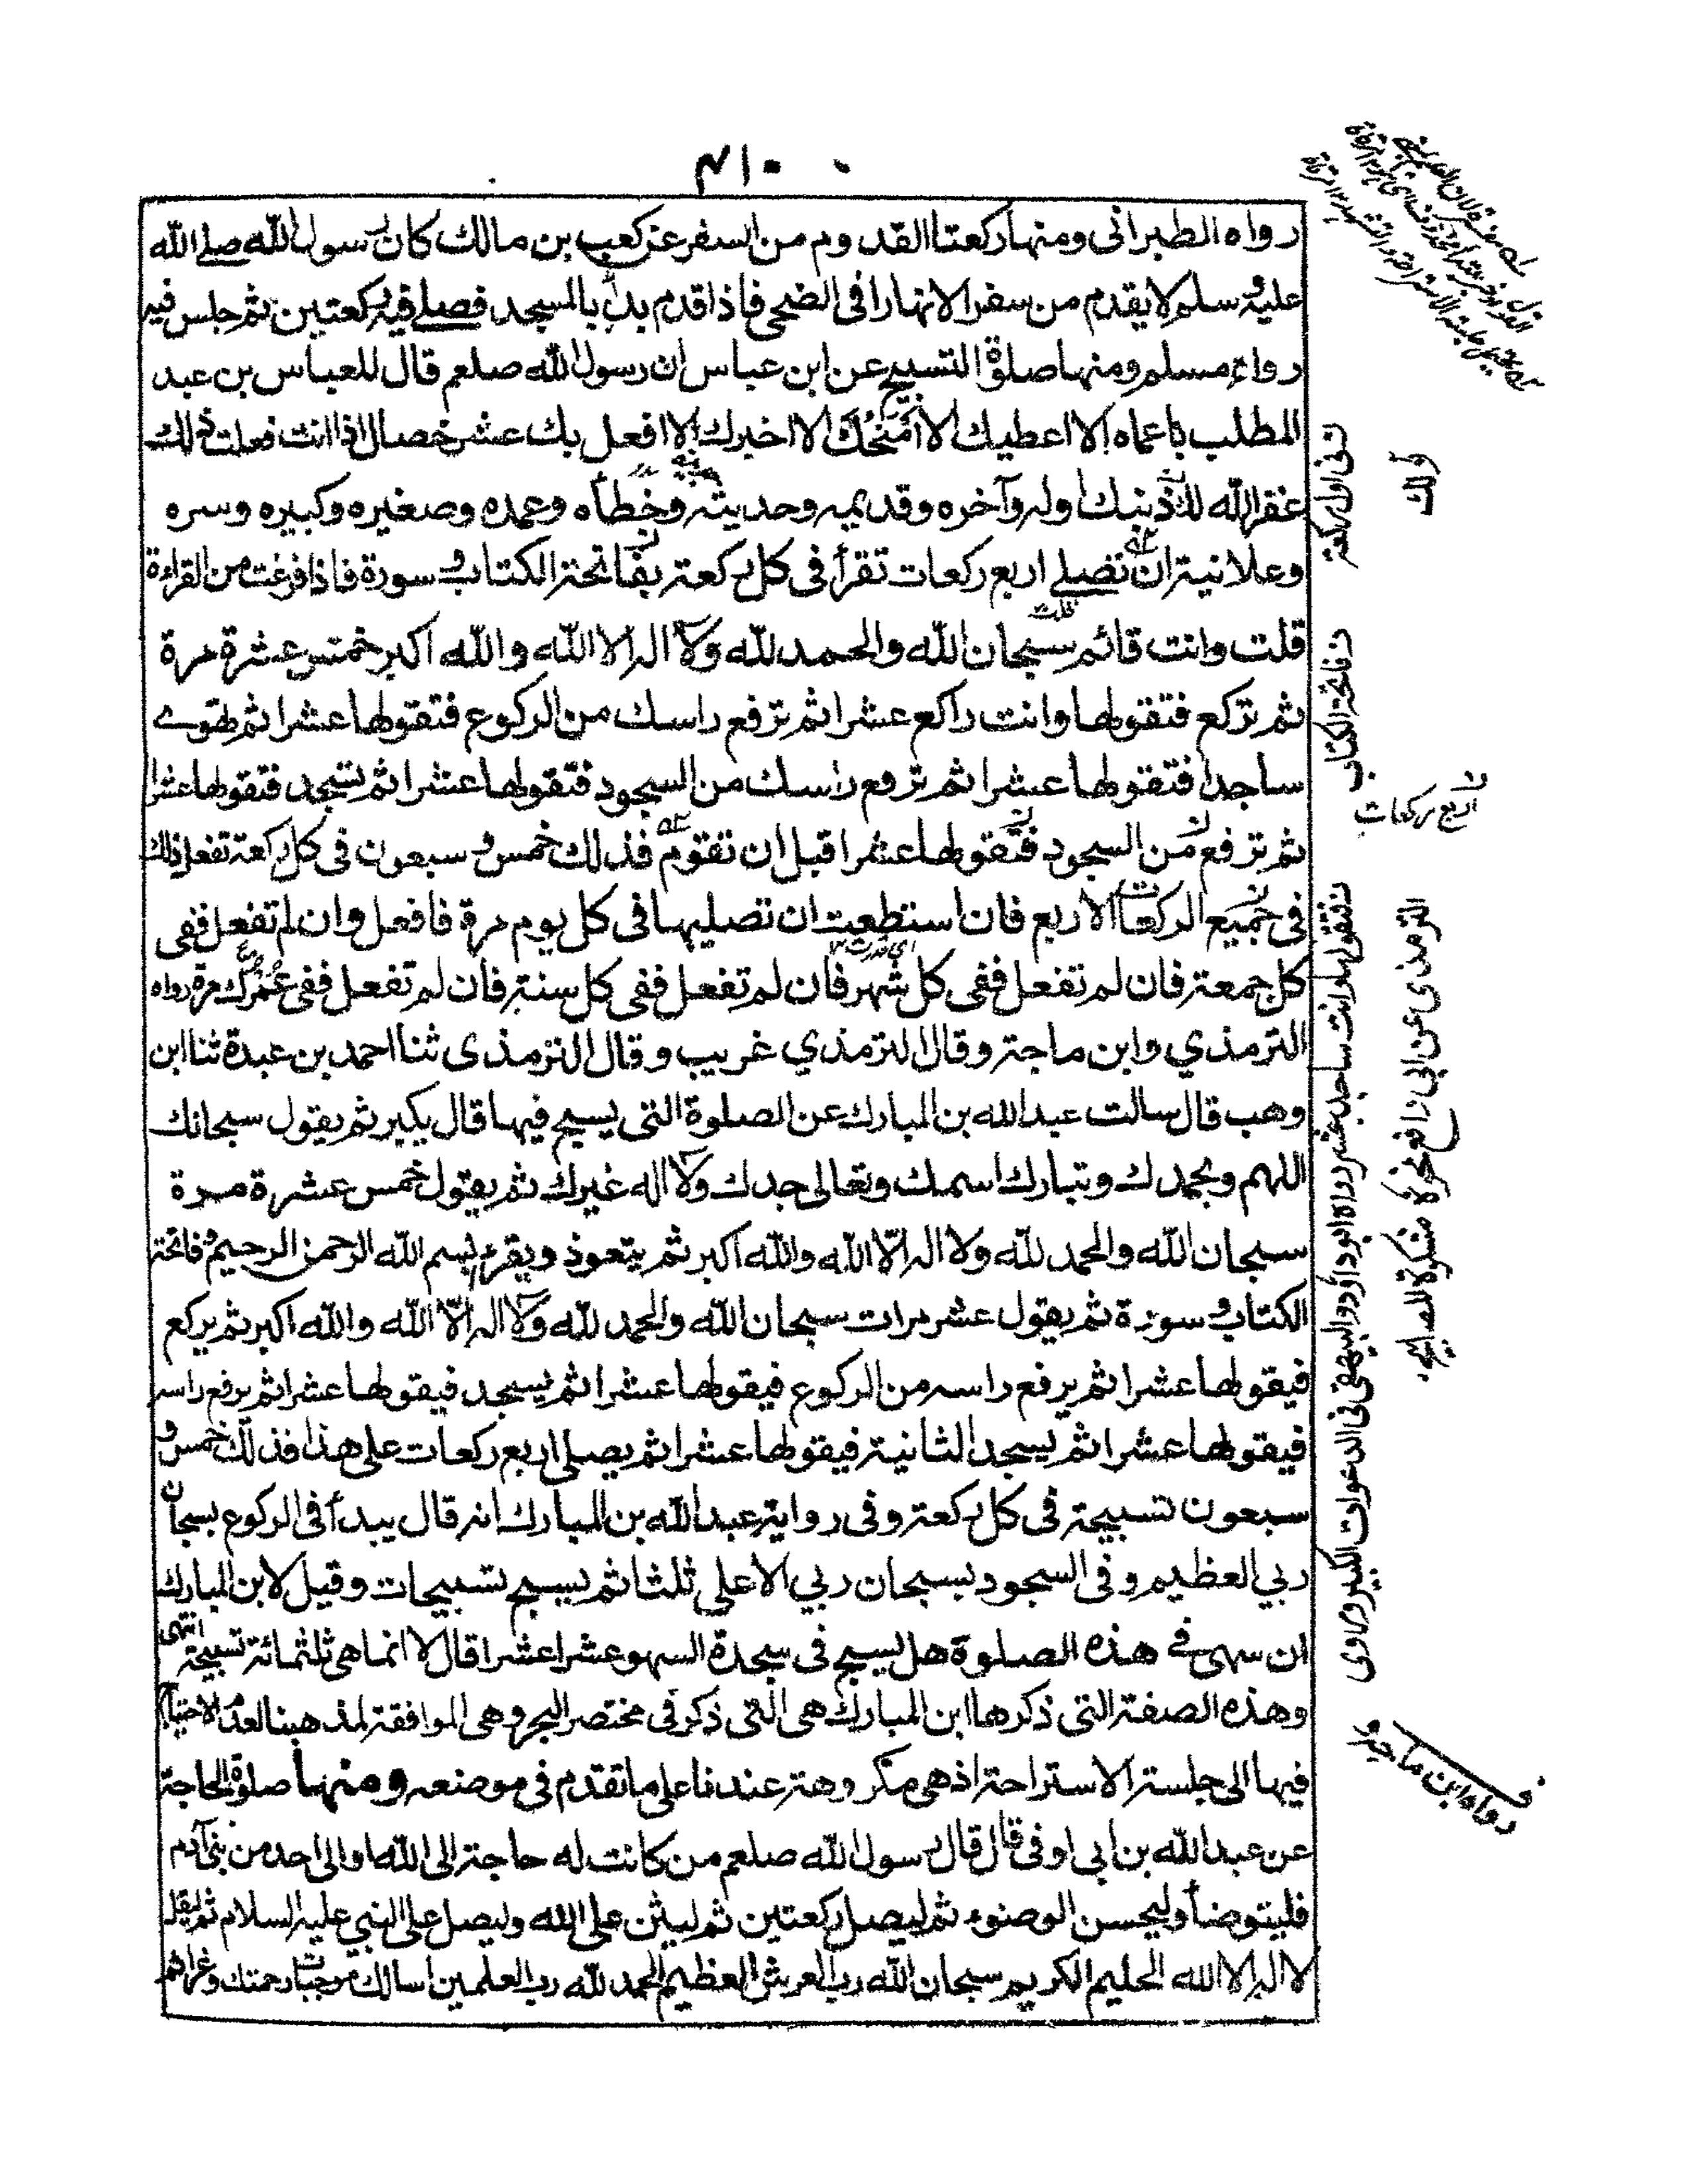 ٤١٠
رواه الطبرانى ومنها ركعتا القدوم من السفر عن كعب بن مالك كان رسول الله صلے الله
عليه وسلم لا يقدم من سفر الا نهارا فى الضحى فاذا قدم بدأ بالمسجد فصلے فيه ركعتين ثم جلس فيه
رواه مسلم ومنها صلوة التسبيح عن ابن عباس ان رسول الله صلعم قال للعباس بن عبد
المطلب يا عماه الا اعطيك الا امنحك الا اخبرك الا افعل بك عشر خصال اذا انت فعلت ذلك
غفر الله لك ذنبك اوله وآخره وقديمه وحديثه وخطأه وعمده وصغيره وكبيره وسره
وعلانيته ان تصلے اربع ركعات تقرأ فى كل ركعة بفاتحة الكتاب وسورة فاذا فرغت من القراءة
قلت وانت قائم سبحان الله والحمد لله ولا اله الا الله والله اكبر خمس عشرة مرة
ثم تركع فتقولها وانت راكع عشرا ثم ترفع راسك من الركوع فتقولها عشرا ثم تهوے
ساجدا فتقولها عشرا ثم ترفع راسك من السجود فتقولها عشرا ثم تسجد فتقولها عشرا
ثم ترفع من السجود فتقولها عشرا قبل ان تقوم فذلك خمس وسبعون فى كل ركعة تفعل ذلك
فى جميع الركعات الاربع فان استطعت ان تصليها فى كل يوم مرة فافعل وان لم تفعل ففى
كل جمعة فان لم تفعل ففى كل شهر فان لم تفعل ففى كل سنة فان لم تفعل ففى عمرك مرة رواه
الترمذي وابن ماجة وقال الترمذي غريب وقال الترمذى ثنا احمد بن عبدة ثنا ابن
وهب قال سالت عبد الله بن المبارك عن الصلوة التى يسبح فيها قال يكبر ثم يقول سبحانك
اللهم وبحمدك وتبارك اسمك وتعالى جدك ولا اله غيرك ثم يقول خمس عشرة مرة
سبحان الله والحمد لله ولا اله الّا الله والله اكبر ثم يتعوذ ويقرء بسم الله الرحمن الرحيم وفاتحة
الكتاب وسورة ثم يقول عشر مرات سبحان الله والحمد لله ولا اله الّا الله والله اكبر ثم يركع
فيقولها عشرا ثم يرفع راسه من الركوع فيقولها عشرا ثم يسجد فيقولها عشرا ثم يرفع راسه
فيقولها عشرا ثم يسجد الثانية فيقولها عشرا ثم يصلى اربع ركعات على هذا فذلك خمس و
سبعون تسبيحة فى كل ركعة وفى رواية عبد الله بن المبارك انه قال يبدأ فى الركوع بسبحان
ربي العظيم وفى السجود بسبحان ربي الاعلى ثلثا ثم يسبح تسبيحات وقيل لابن المبارك
ان سهى فے هذه الصلوة هل يسبح فى سجدة السهو عشرا عشرا قال لا انما هى ثلثمائة تسبيحة انتهى
وهذه الصفة التى ذكرها ابن المبارك هى التى ذكر فى مختصر البحر وهى الموافقة لمذهبنا لعدم الاحتياج
فيها الى جلسة الاستراحة اذ هى مكروهة عندنا على ما تقدم فى موضعه ومنها صلوة الحاجة
عن عبد الله بن ابى اوفى قال قال رسول الله صلعم من كانت له حاجة الى الله او الى احد من بنى آدم
فليتوضأ وليحسن الوضوء ثم ليصل ركعتين ثم ليثن على الله وليصل على النبي عليه السلام ثم ليقل
لا اله الا الله الحليم الكريم سبحان الله رب العرش العظيم الحمد لله رب العلمين اسالك موجبات رحمتك وعزائم
فى اول ركعة
فاتحة الكتاب
اربع ركعات
فتقولها وانت ساجد عشر رواه ابو داؤد والبيهقى فى الدعوات الكبير وروى
الترمذى عن ابى رافع نحوه مشكوة المصابيح
رواه ابن ماجه